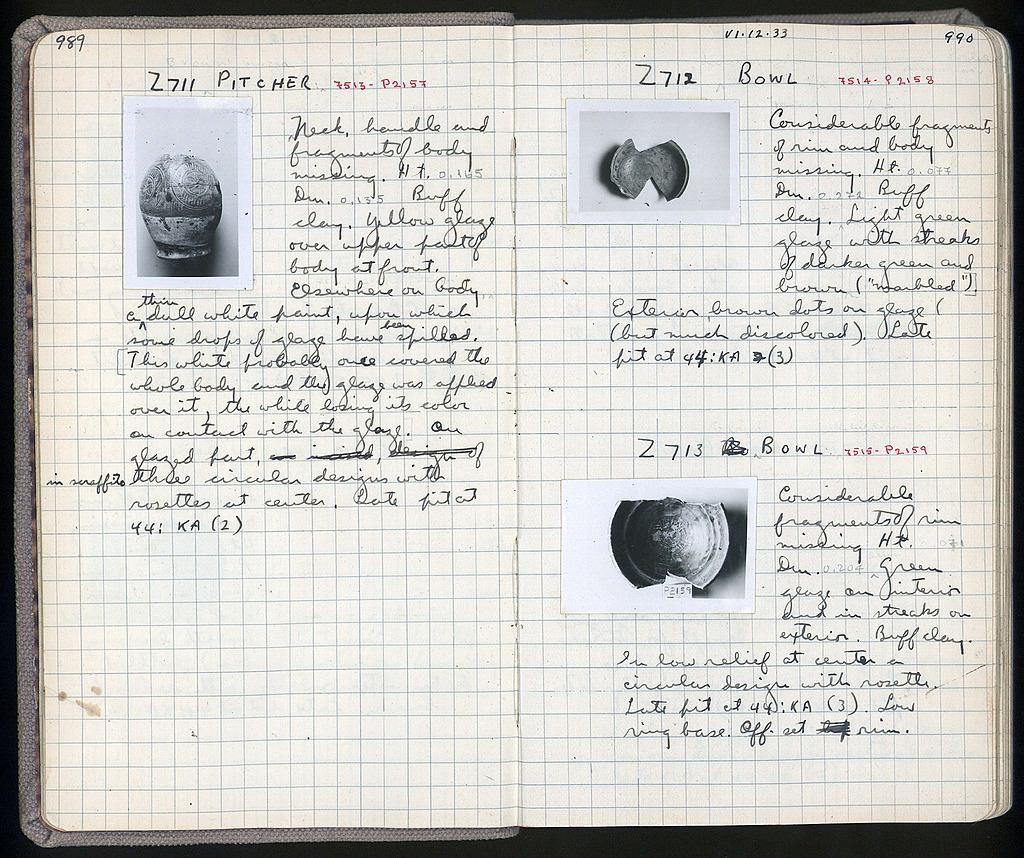 989
Z711 PITCHER 7513-P2157
Neck, handle and
fragments of body
missing. Ht. 0.165
Dm. 0.135 Buff
clay. Yellow glaze
over upper part of
body at front.
Elsewhere on body,
a thin dull white paint, upon which
some drops of glaze have been spilled.
[This white probably once covered the
whole body and the glaze was applied
over it, the white losing its color
on contact with the glaze. On
glazed part, design of
in scraffito three circular designs with
rosettes at center. Late pit at
44: KA (2)
VI.12.33
990
Z712 BOWL 7514-P2158
Considerable fragments
of rim and body
missing. Ht. 0.077
Dm. Buff
clay. Light green
glaze with streaks
of darker green and
brown ("marbled")]
Exterior brown dots on glaze (
(but much discolored). Late
pit at 44:KA (3)
Z 713 BOWL 7515-P2159
P2159
Considerable
fragments of rim
missing Ht. 071
Dm. 0.204 Green
glaze on interior
and in streaks on
exterior. Buff clay.
In low relief at center a
circular design with rosette.
Late pit at 44:KA (3). Low
ring base. Off-set rim.